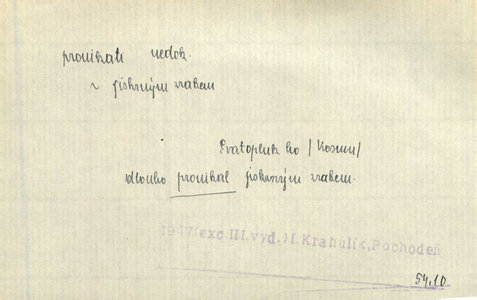 pronikati nedok.
~ jiskrným zrakem
Svatopluk ho /Kosmu/
dlouho pronikal jiskrným zrakem.
1947(exc III.vyd.)I.Krahulík,Pochodeň
54.10